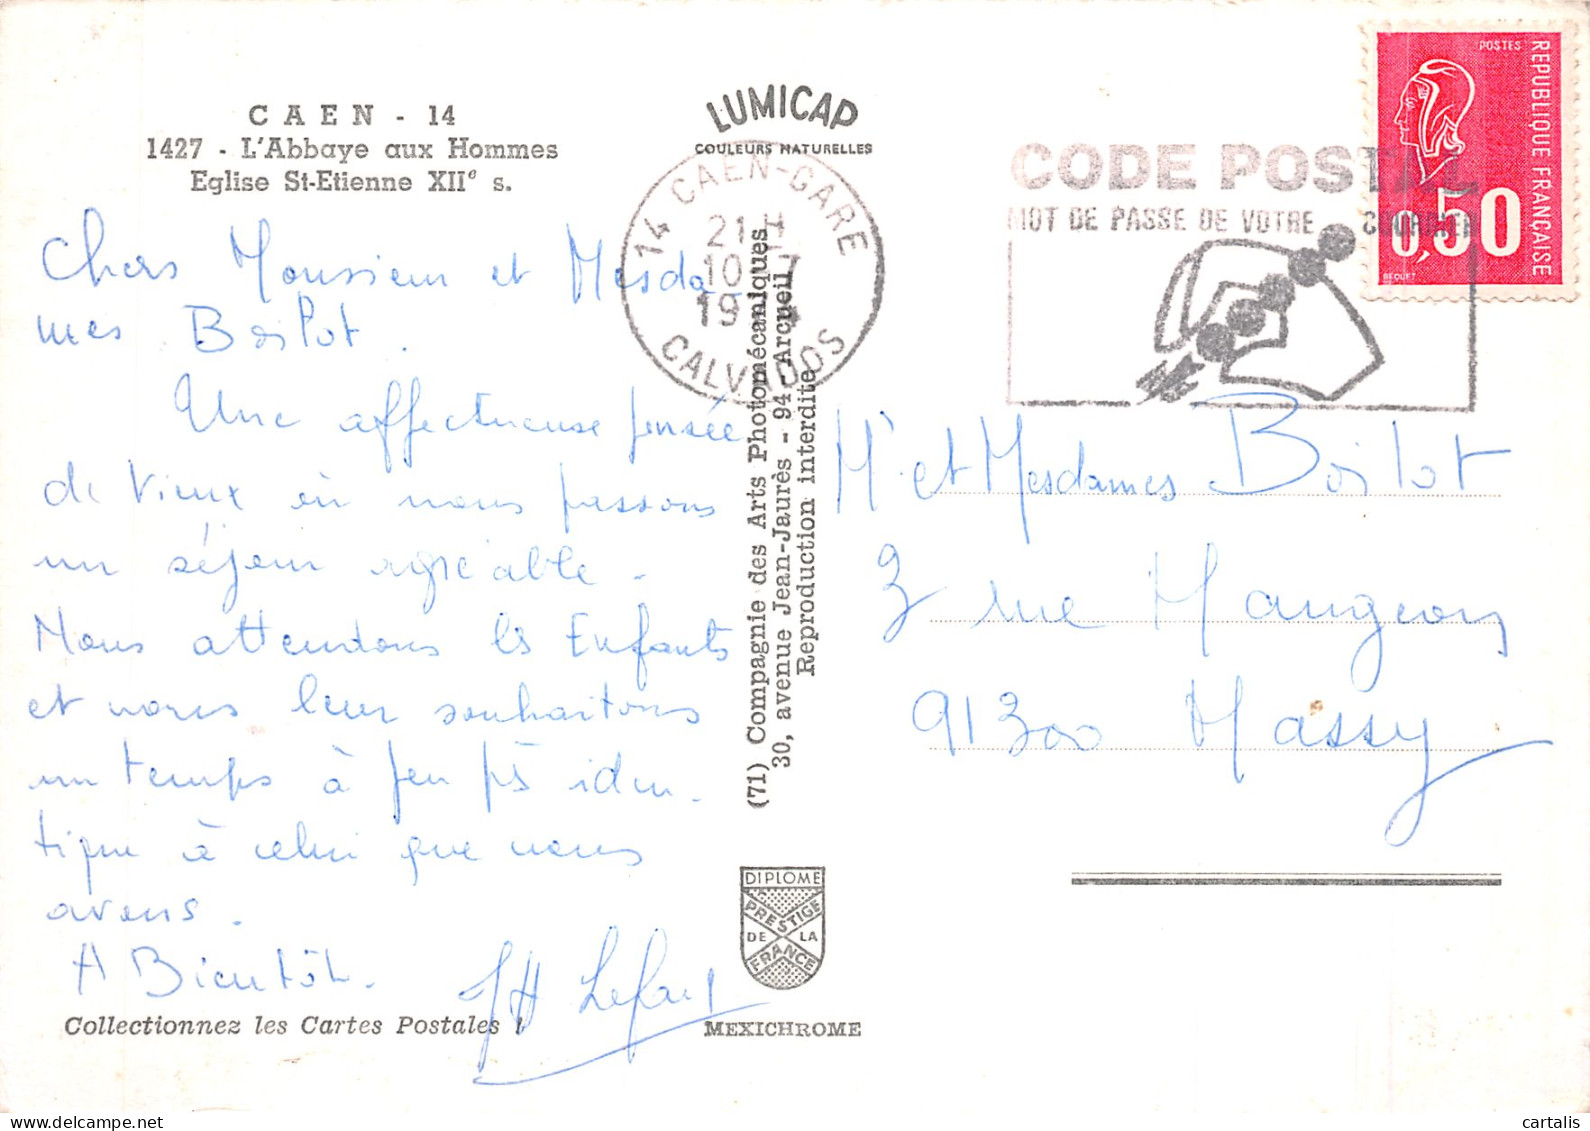 CAEN - 14
1427 - L'Abbaye aux Hommes
Eglise St-Etienne XIIe s.
LUMICAP
COULEURS NATURELLES
14 CAEN-GARE
21 H
10 7
19
CALVADOS
CODE POSTAL
MOT DE PASSE DE VOTRE COURRIER
POSTES
REPUBLIQUE FRANÇAISE
0,50
BEQUET
Chers Monsieur et Mesda
mes Boilot.
Une affectueuse pensée
de Vieux où nous passons
un séjour agréable.
Nous attendons les Enfants
et nous leur souhaitons
un temps à peu près iden-
tique à celui que nous
avons.
A Bientôt.
(71) Compagnie des Arts Photomécaniques
30, avenue Jean-Jaurès - 94-Arcueil
Reproduction interdite
Mr et Mesdames Boilot
3 rue Maugeon
91300 Massy
DIPLOME
PRESTIGE
DE LA
FRANCE
Collectionnez les Cartes Postales !
MEXICHROME
cartalis